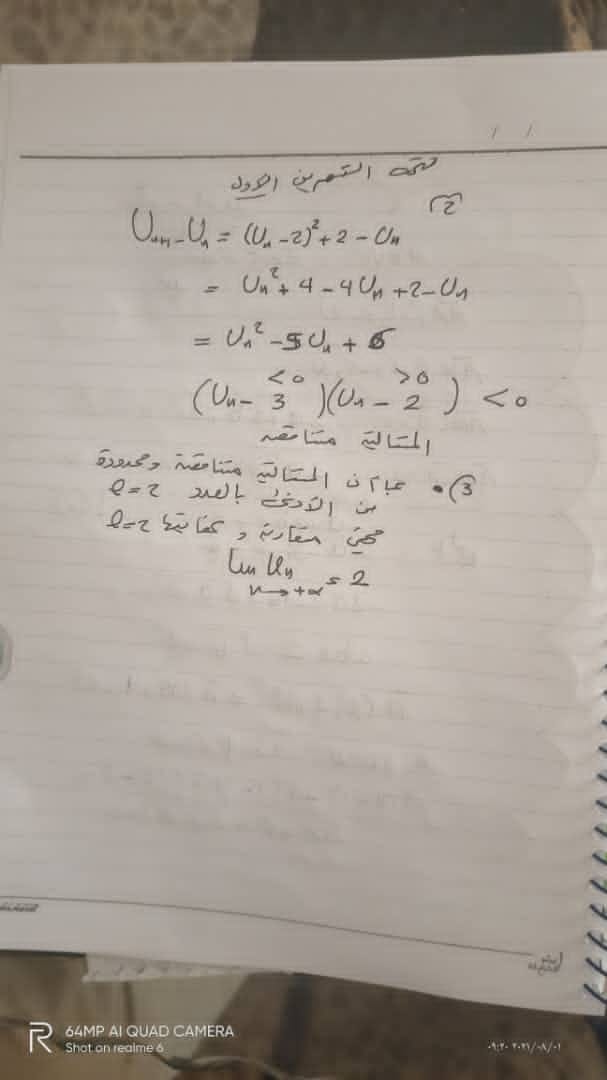 / /
تتمة التمرين الأول
(2
Uₙ₊₁ - Uₙ = (Uₙ - 2)² + 2 - Uₙ
= Uₙ² + 4 - 4Uₙ + 2 - Uₙ
= Uₙ² - 5Uₙ + 6
<0 >0
(Uₙ - 3)(Uₙ - 2) < 0
المتتالية متناقصة
(3 • بما أن المتتالية متناقصة ومحدودة
من الأدنى بالعدد l = 2
فهي متقاربة و نهايتها l = 2
lim Uₙ = 2
n→+∞
64MP AI QUAD CAMERA
Shot on realme 6
٠٩:٢٠ ٢٠٢١/٠٨/٠١